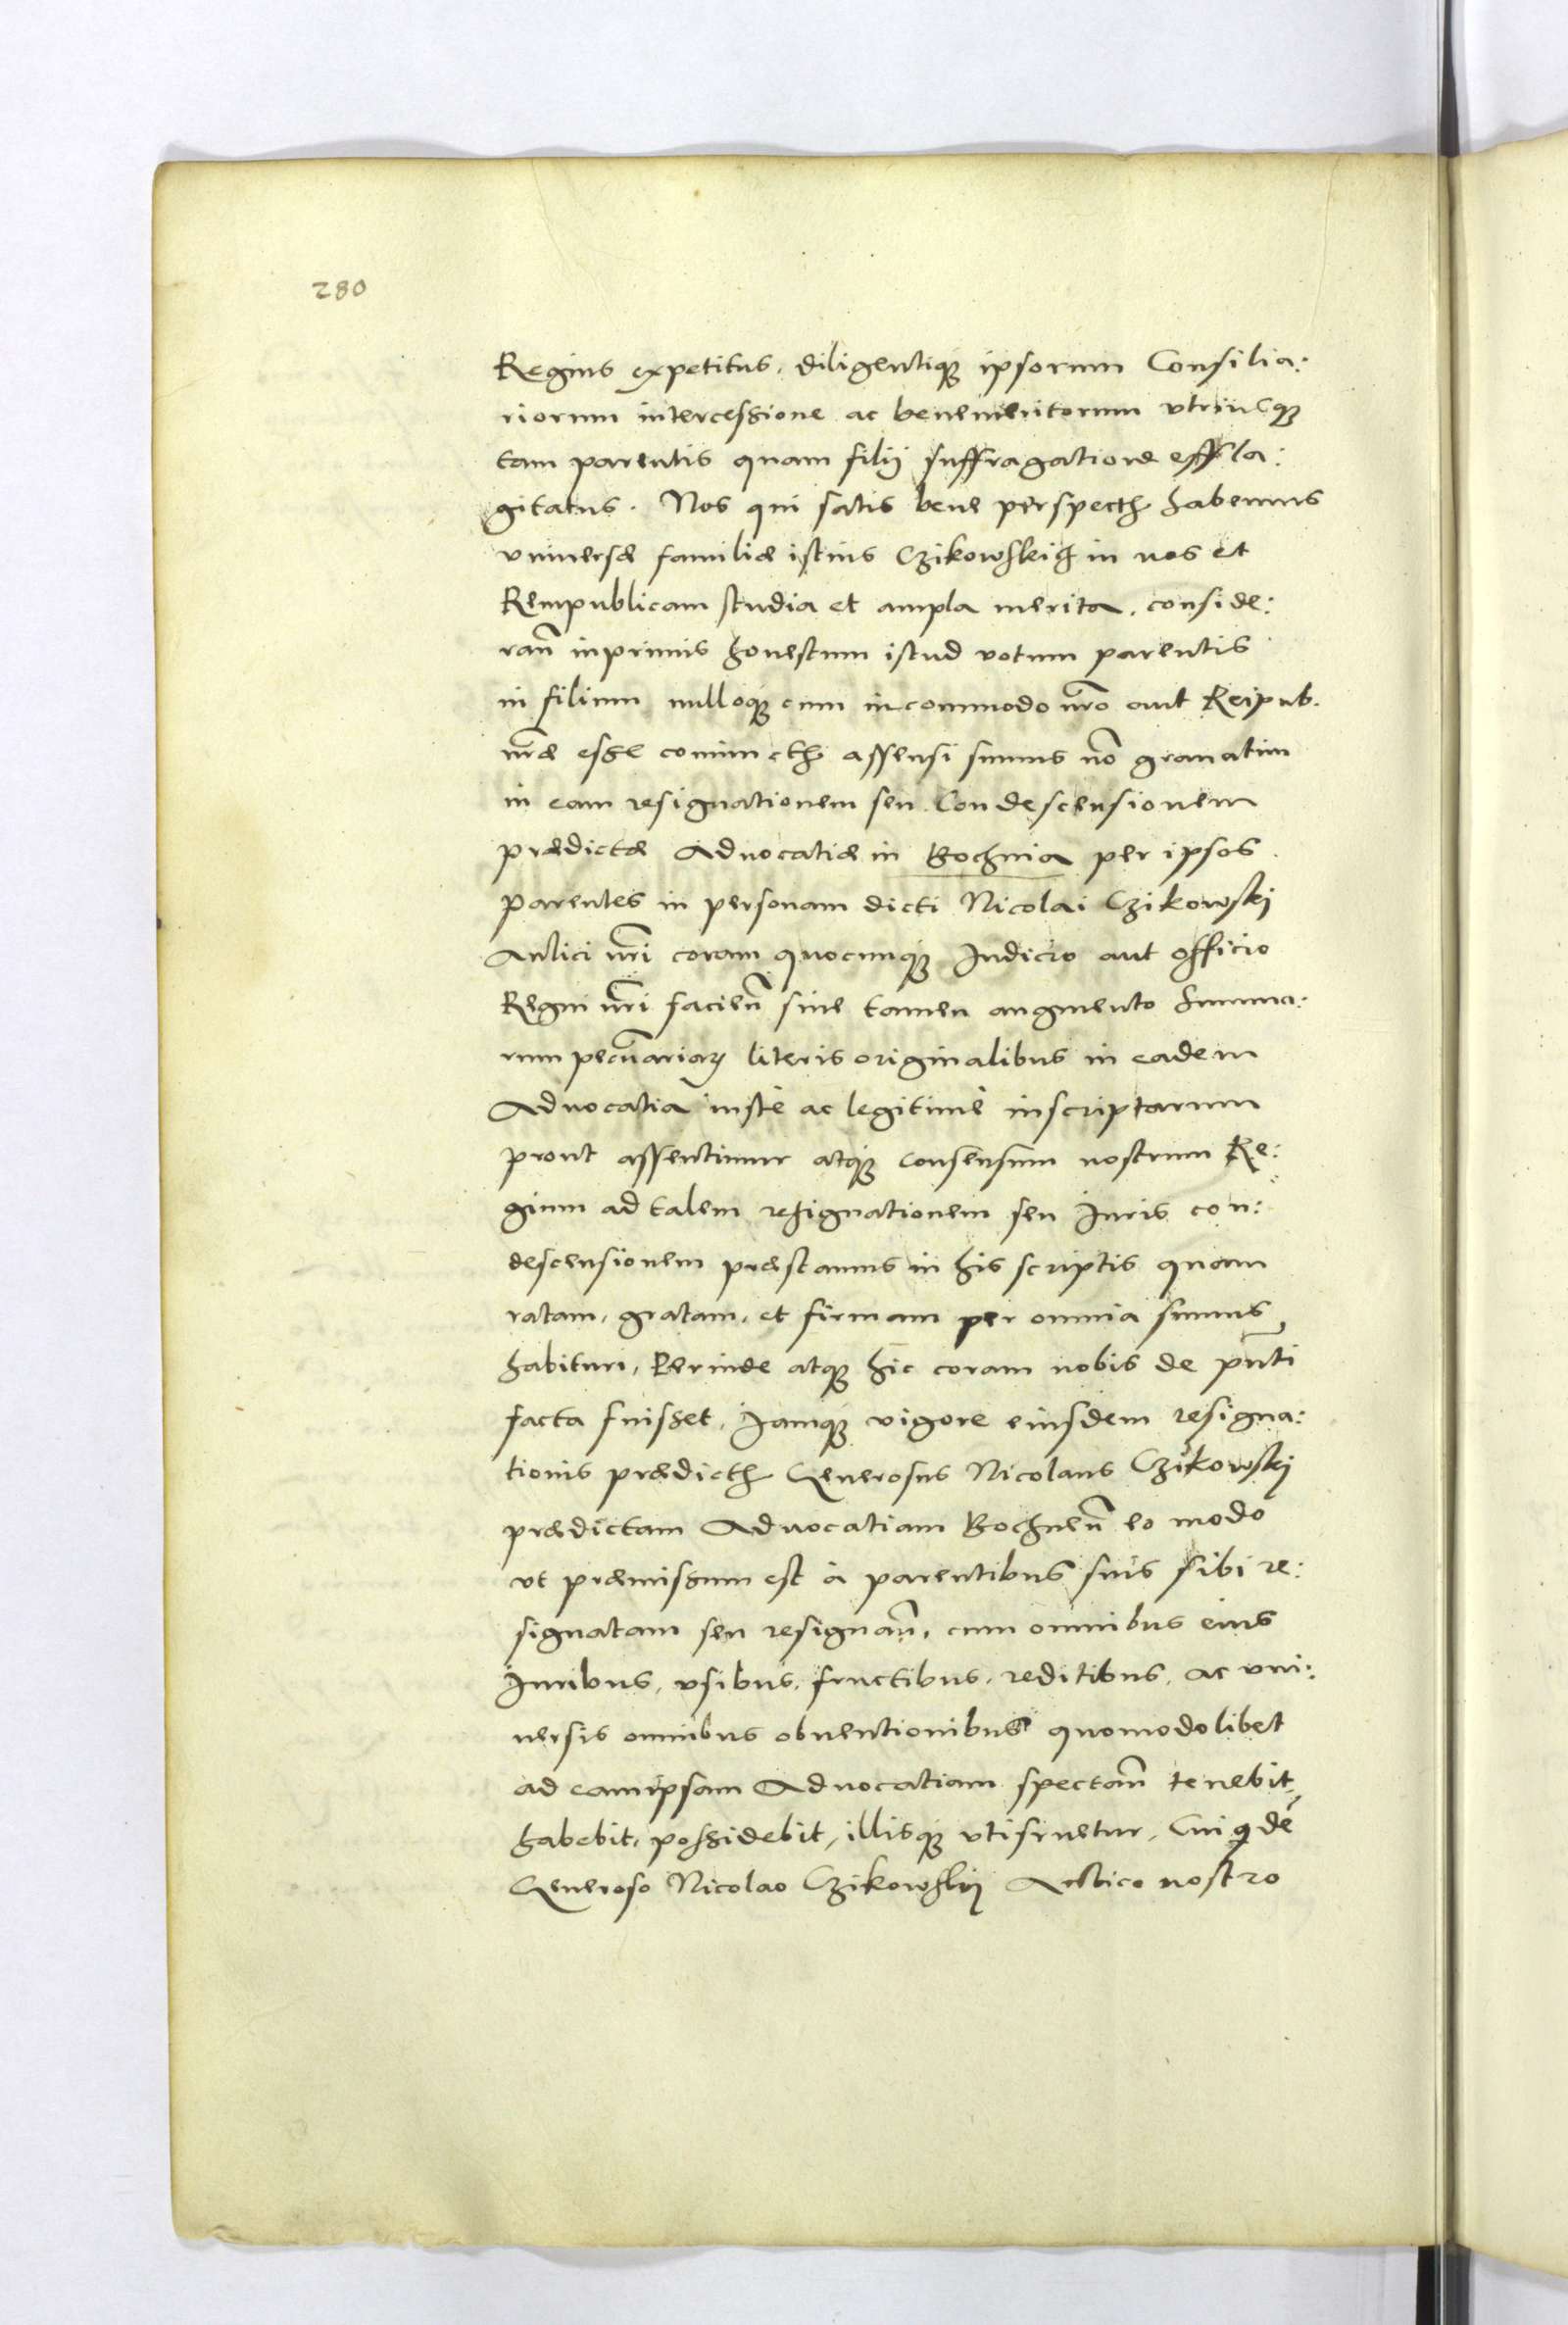 280
Regius expetitus, diligentiqz ipsorum Consilia:
riorum intercessione ac benemeritorum vtriusqz
tam parentis quam filij suffragatione effla:
gitatus. Nos qui satis bene perspectũ habemus
vniuersæ familiæ istius Czikowskiej in nos et
Rempublicam studia et ampla merita, conside:
rañ inprimis honestum istud votum parentis
in filium nulloqz cum incommodo nr̃o aut Reipub.
nr̃æ esse coniunctũ assensi sumus nõ grauatim
in eam resignationem seu Condescensionem
prædictæ Aduocatiæ in Bochnia per ipsos
parentes in personam dicti Nicolai Czikowskj
Aulici nr̃i coram quocunqz Iudicio aut officio
Regni nr̃i facieñ sine tamen augmento summa:
rum pecũariaꝝ literis originalibus in eadem
Aduocatia iustè ac legitimè inscriptarum
prout assentimur atqz consensum nostrum Re:
gium ad talem resignationem seu Iuris con:
descensionem præstamus in his scriptis quam
ratam, gratam, et firmam per omnia sumus
habituri, Perinde atqz hic coram nobis de pñti
facta fuisset, Iamqz vigore eiusdem resigna:
tionis prædictũ Generosus Nicolaus Czikowskj
prædictam Aduocatiam Bochneñ eo modo
vt præmissum est à parentibus suis sibi re:
signatam seu resignañ, cum omnibus eius
Iuribus, vsibus, fructibus, reditibus, ac vni:
uersis omnibus obuentionibus quomodolibet
ad eamipsam Aduocatiam spectañ tenebit,
habebit, possidebit, illisqz vtifruetur, Cui qdẽ
Generoso Nicolao Czikowskij Aulico nostro